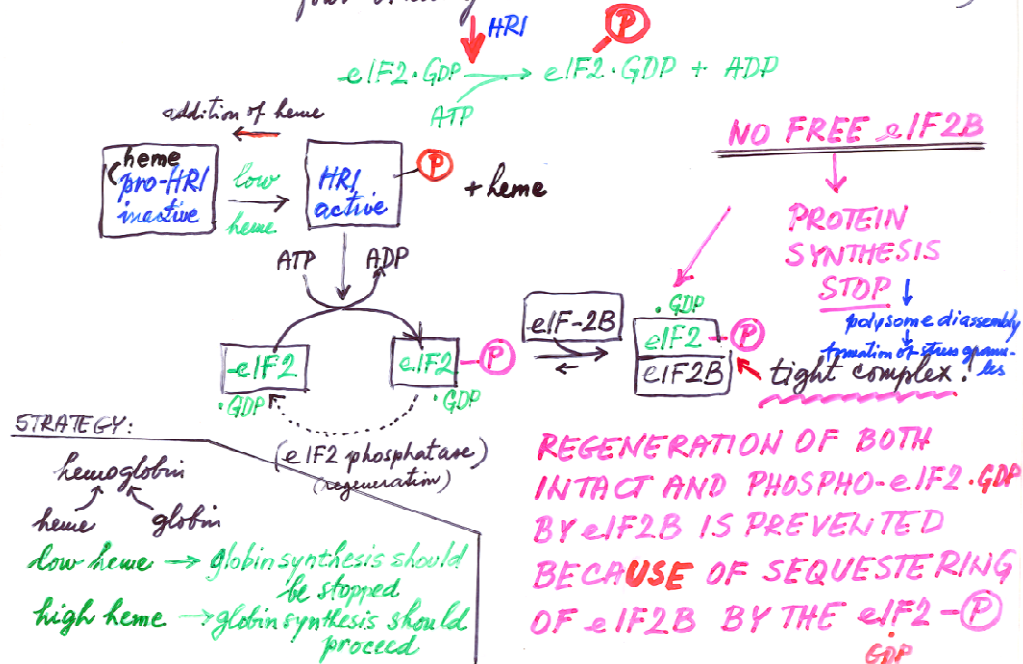 HRI
P
eIF2·GDP → eIF2·GDP + ADP
ATP
addition of heme
heme
pro-HRI
inactive
low
heme
HRI
active
P
+ heme
ATP
ADP
eIF2
·GDP
eIF2
P
·GDP
(eIF2 phosphatase)
(regeneration)
eIF-2B
·GDP
eIF2
P
eIF2B
tight complex!
NO FREE eIF2B
PROTEIN
SYNTHESIS
STOP
polysome diassembly
formation of stress granu-
les
STRATEGY:
hemoglobin
heme globin
low heme → globin synthesis should
be stopped
high heme → globin synthesis should
proceed
REGENERATION OF BOTH
INTACT AND PHOSPHO-eIF2·GDP
BY eIF2B IS PREVENTED
BECAUSE OF SEQUESTERING
OF eIF2B BY THE eIF2-P
GDP